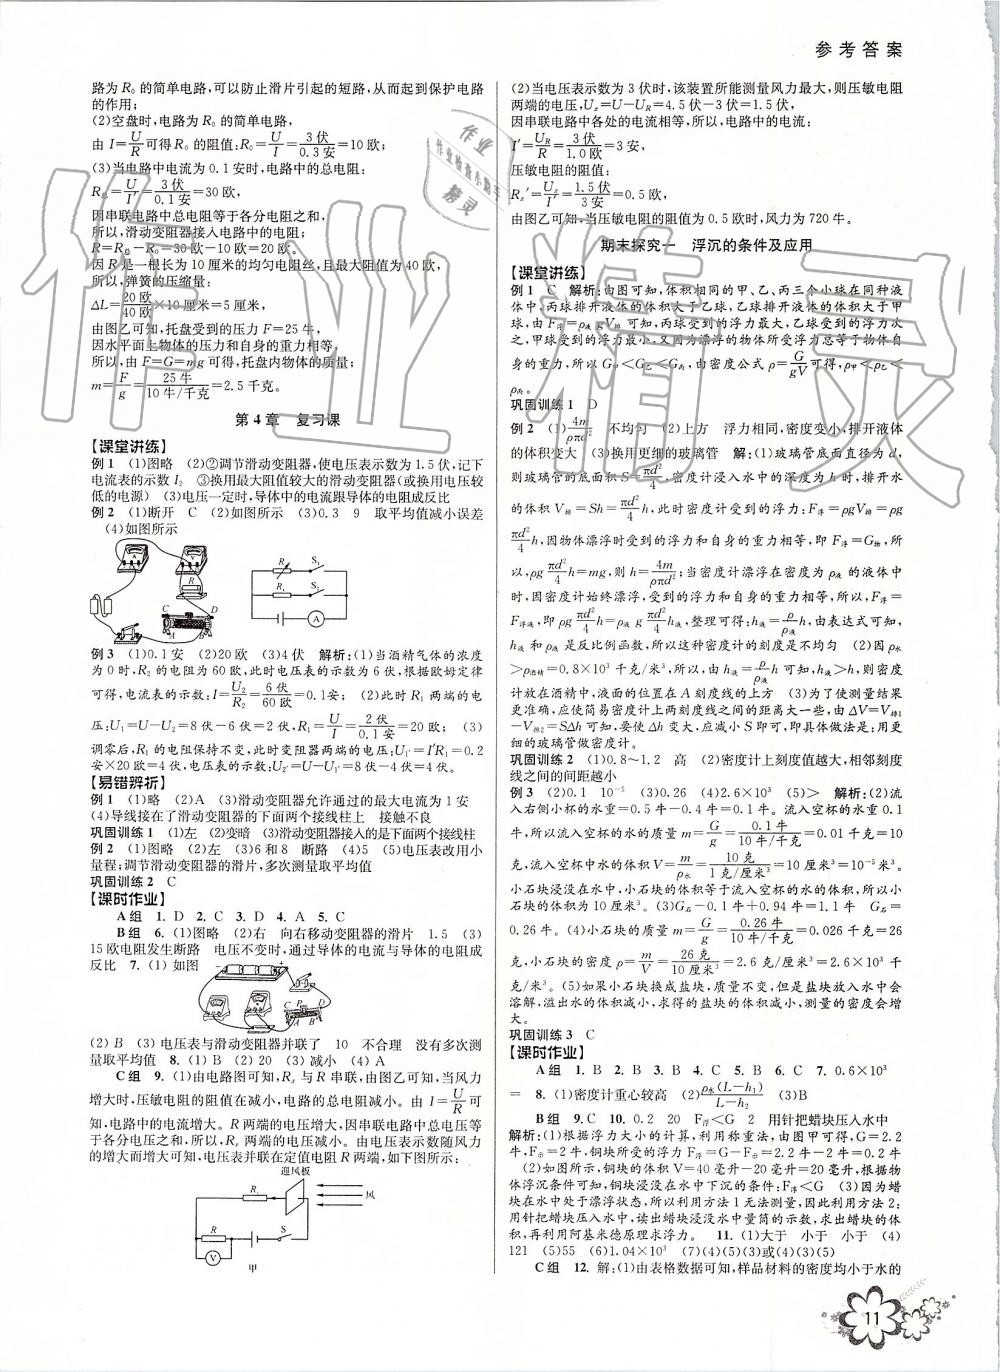 参考答案
路为R₀的简单电路,可以防止滑片引起的短路,从而起到保护电路
的作用;
(2)空盘时,电路为R₀的简单电路,
由I=U/R可得R₀的阻值:R₀=U/I=3伏/0.3安=10欧;
(3)当电路中电流为0.1安时,电路中的总电阻:
R总=U/I′=3伏/0.1安=30欧,
因串联电路中总电阻等于各分电阻之和,
所以,滑动变阻器接入电路中的电阻:
R=R总-R₀=30欧-10欧=20欧,
因R是一根长为10厘米的均匀电阻丝,且最大阻值为40欧,
所以,弹簧的压缩量:
ΔL=20欧/40欧×10厘米=5厘米,
由图乙可知,托盘受到的压力F=25牛,
因水平面上物体的压力和自身的重力相等,
所以,由F=G=mg可得,托盘内物体的质量:
m=F/g=25牛/10牛/千克=2.5千克。
第4章 复习课
【课堂讲练】
例1 (1)图略 (2)②调节滑动变阻器,使电压表示数为1.5伏,记下
电流表的示数I₂ ③换用最大阻值较大的滑动变阻器(或换用电压较
低的电源) (3)电压一定时,导体中的电流跟导体的电阻成反比
例2 (1)断开 C (2)如图所示 (3)0.3 9 取平均值减小误差
(4)如图所示
例3 (1)0.1安 (2)20欧 (3)4伏 解析:(1)当酒精气体的浓度
为0时,R₂的电阻为60欧,此时电压表的示数为6伏,根据欧姆定律
可得,电流表的示数:I=U₂/R₂=6伏/60欧=0.1安; (2)此时R₁两端的电
压:U₁=U-U₂=8伏-6伏=2伏,R₁=U/I=2伏/0.1安=20欧; (3)
调零后,R₁的电阻保持不变,此时变阻器两端的电压:U₁′=I′R₁=0.2
安×20欧=4伏,电压表的示数:U₂′=U-U₁′=8伏-4伏=4伏
【易错辨析】
例1 (1)略 (2)A (3)滑动变阻器允许通过的最大电流为1安
(4)导线接在了滑动变阻器的下面两个接线柱上 接触不良
巩固训练1 (1)左 (2)变暗 (3)滑动变阻器接入的是下面两个接线柱
例2 (1)图略 (2)左 (3)6和8 断路 (4)5 (5)电压表改用小
量程;调节滑动变阻器的滑片,多次测量取平均值
巩固训练2 C
【课时作业】
A组 1. D 2. C 3. D 4. A 5. C
B组 6. (1)图略 (2)右 向右移动变阻器的滑片 1.5 (3)
15欧电阻发生断路 电压不变时,通过导体的电流与导体的电阻成
反比 7. (1)如图
(2)B (3)电压表与滑动变阻器并联了 10 不合理 没有多次测
量取平均值 8. (1)B (2)20 (3)减小 (4)A
C组 9. (1)由电路图可知,Rₓ与R串联,由图乙可知,当风力
增大时,压敏电阻的阻值在减小,电路中的总电阻减小。由I=U/R可
知,电路中的电流增大。R两端的电压增大,因串联电路中总电压等
于各分电压之和,所以,Rₓ两端的电压减小。由电压表示数随风力
的增大而增大可知,电压表并联在定值电阻R两端,如下图所示:
迎风板
风
甲
(2)当电压表示数为3伏时,该装置所能测量风力最大,则压敏电阻
两端的电压,Uₓ=U-UR=4.5伏-3伏=1.5伏,
因串联电路中各处的电流相等,所以,电路中的电流:
I′=UR/R=3伏/1.0欧=3安,
压敏电阻的阻值:
Rₓ′=Uₓ/I′=1.5伏/3安=0.5欧,
由图乙可知,当压敏电阻的阻值为0.5欧时,风力为720牛。
期末探究一 浮沉的条件及应用
【课堂讲练】
例1 C 解析:由图可知,体积相同的甲、乙、丙三个小球在同种液
体中,丙球排开液体的体积大于乙球,乙球排开液体的体积大于甲
球,由F浮=ρ液gV排可知,丙球受到的浮力最大,乙球受到的浮力次
之,甲球受到的浮力最小,又因为漂浮的物体所受浮力总等于物体自
身的重力,所以G甲<G乙<G丙,由密度公式ρ=G/gV可得,ρ甲<ρ乙<
ρ丙。
巩固训练1 D
例2 (1)4m/ρπd² 不均匀 (2)上方 浮力相同,密度变小,排开液体
的体积变大 (3)换用更细的玻璃管 解:(1)玻璃管底面直径为d,
则玻璃管的底面积S=πd²/4,密度计浸入水中的深度为h时,排开水
的体积V排=Sh=πd²/4h,此时密度计受到的浮力:F浮=ρgV排=ρg
πd²/4h,因物体漂浮时受到的浮力和自身的重力相等,即F浮=G物,所
以,ρgπd²/4h=mg,则h=4m/ρπd²;当密度计漂浮在密度为ρ液的液体中
时,因密度计始终漂浮,受到的浮力和自身的重力相等,所以,F浮=
F浮液,即ρgπd²/4h=ρ液gπd²/4h液,整理可得:h液=ρ/ρ液h,由表达式可知,
h液和ρ液是反比例函数,所以这种密度计的刻度是不均匀 (2)因ρ水
>ρ酒精=0.8×10³千克/米³,所以,由h液=ρ/ρ液h可知,h液>h,则密度
计放在酒精中,液面的位置在A刻度线的上方 (3)为了使测量结果
更准确,应使简易密度计上两刻度线之间的距离大一些,由ΔV=V排1
-V排2=SΔh可知,要使Δh变大,应减小S即可,即具体做法是:用更
细的玻璃管做密度计。
巩固训练2 (1)0.8~1.2 高 (2)密度计上刻度值越大,相邻刻度
线之间的间距越小
例3 (2)0.1 10⁻⁵ (3)0.26 (4)2.6×10³ (5)> 解析:(2)流
入右侧小杯的水重=0.5牛-0.4牛=0.1牛。流入空杯的水重0.1
牛,流入空杯的水的质量m=G/g=0.1牛/10牛/千克=0.01千克=10
克,流入空杯中水的体积V=m/ρ水=10克/1克/厘米³=10厘米³=10⁻⁵米³。
小石块浸没在水中,小石块的体积等于流入空杯的水的体积,所以小
石块的体积为10厘米³。(3)G石-0.1牛+0.94牛=1.1牛 G石=
0.26牛。(4)小石块的质量m=G/g=0.26牛/10牛/千克=0.026千克=26
克,小石块的密度ρ=m/V=26克/10厘米³=2.6克/厘米³=2.6×10³千
克/米³。(5)如果小石块换成盐块,质量不变,但是盐块放入水中会
溶解,溢出水的体积减小,求得的盐块的体积减小,测量的密度会增
大。
巩固训练3 C
【课时作业】
A组 1. B 2. B 3. B 4. C 5. B 6. C 7. 0.6×10³
= 8. (1)密度计重心较高 (2)ρ水(L-h₁)/L-h₂ (3)B
B组 9. C 10. 0.2 20 F浮<G 2 用针把蜡块压入水中
解析:(1)根据浮力大小的计算,利用称重法,由图甲可得,G=2.2
牛,F示=2牛,铜块所受的浮力F浮=G-F示=2.2牛-2牛=0.2牛
(2)如图乙所示,铜块的体积V=40毫升-20毫升=20毫升,根据物
体浮沉条件可知,铜块浸没在水中下沉的条件:F浮<G (3)因为蜡
块在水中处于漂浮状态,所以利用方法1无法测量,因此利用方法2:
用针把蜡块压入水中,读出蜡块浸没水中量筒的示数,求出蜡块的体
积,再利用阿基米德原理求浮力。 11. (1)大于 小于 小于 (4)
121 (5)55 (6)1.04×10³ (7)(4)(5)(3)或(4)(3)(5)
C组 12. 解:(1)由表格数据可知,样品材料的密度均小于水的
11